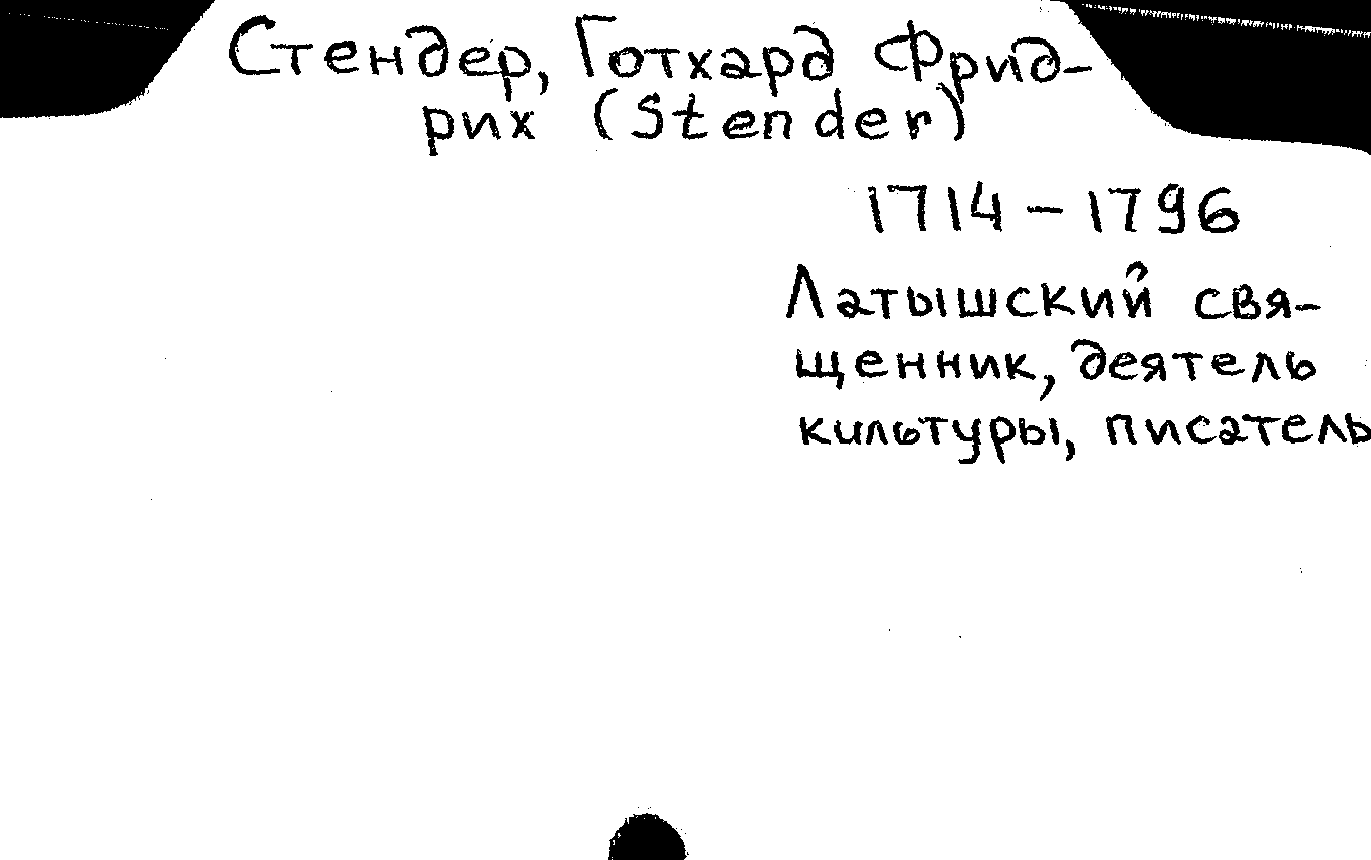 Стендер, Готхард Фрид-
рих (Stender)
1714 – 1796
Латышский свя-
щенник, деятель
кильтуры, писатель